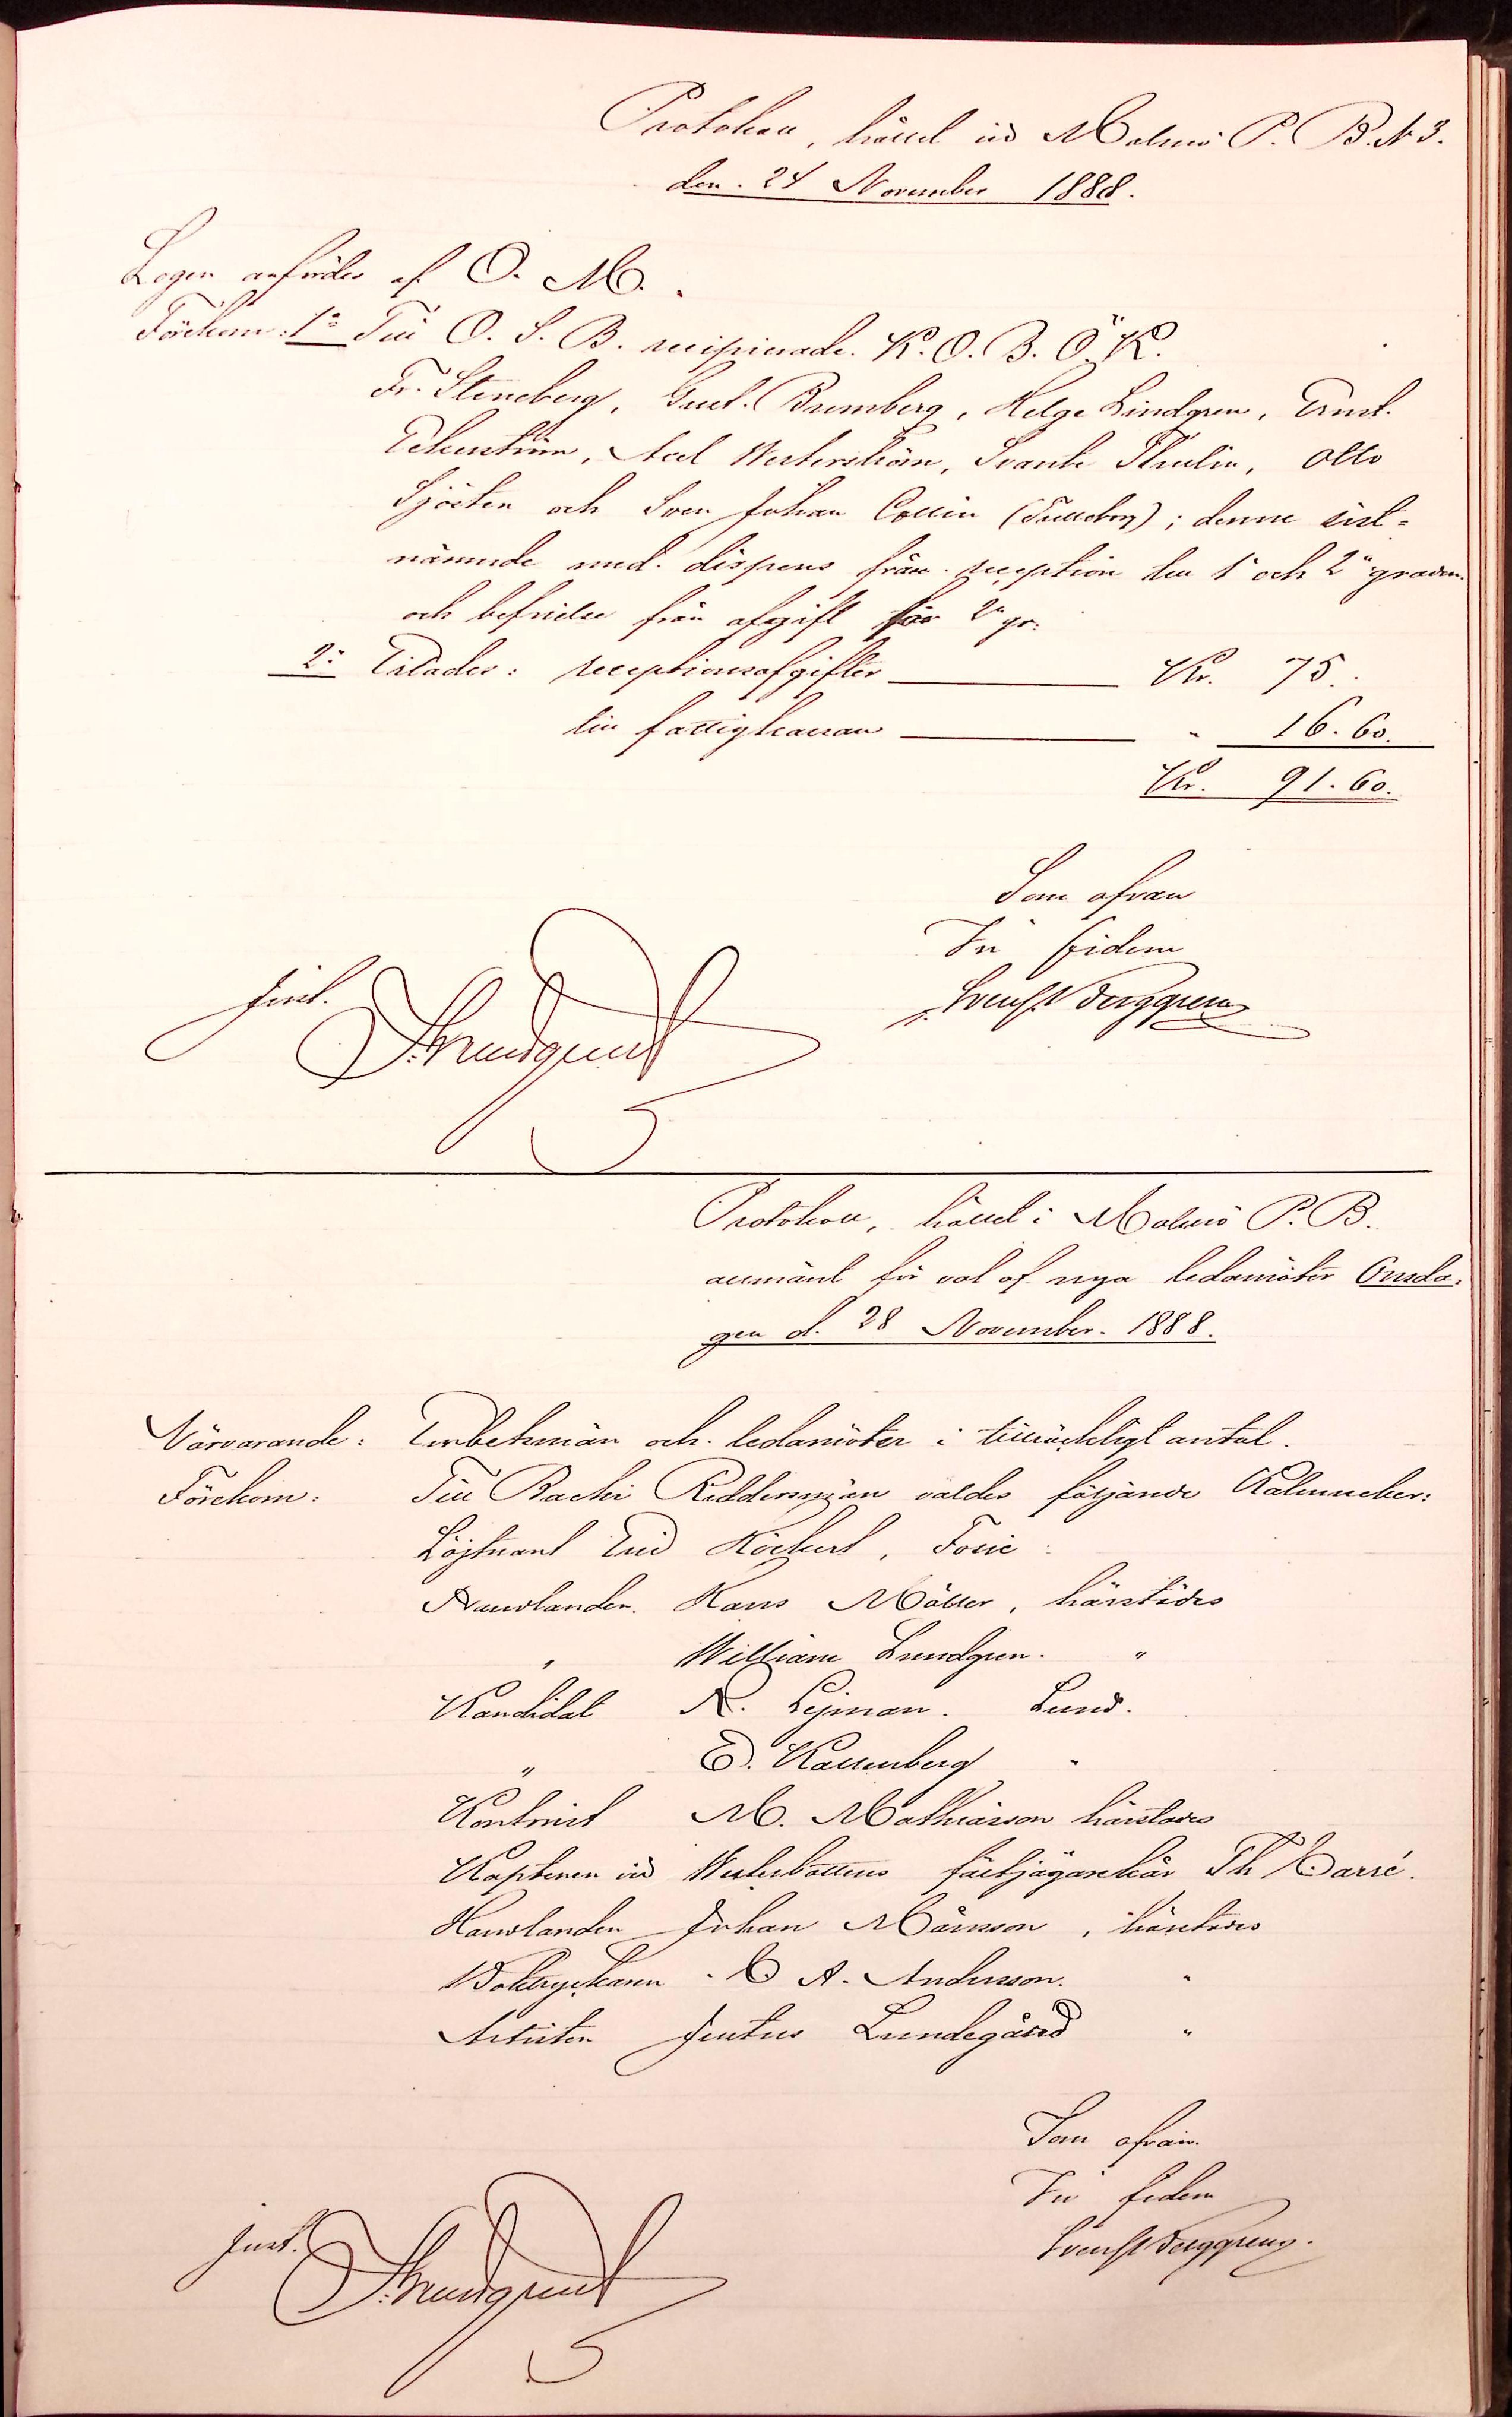 Protokoll, hållet vid Malmö P. B. № 3.
den. 24 November 1888.
Logen anfördes af O. M.
Förekom: 1º Till O. S. B. recipierade. K. O. B. Ö. K.
Fr. Steneberg, Gust. Bromberg, Helge Lindgren, Ernst.
Ekenström, Axel Westerström, Svante Thulin, Otto
Sjösten och Sven Johan Collin (Trelleborg); denne sist-
nämnde med. dispens från. reception den 1a och 2a graden.
och befrielse från afgift för 2a gr:
2º Erlades: receptionsafgifter Kr. 75.
till fattigkassan " 16. 60.
Kr. 91. 60.
Som ofvan
In fidem
Berggren
Just.
Protokoll, hållet i Malmö P. B.
allmänt för val af nya ledamöter Onsda-
gen d. 28 November. 1888.
Närvarande: Embetsmän och. ledamöter i tillräckligt antal.
Förekom: Till Bacchi Riddersmän valdes följande Kalmucker:
Löjtnant Kockert, Fosie
Handlanden. Hans Möller, härstädes
" William Lundgren. "
Kandidat N. Lejman. Lund.
" E. Kallenberg "
Kontorist M. Mathiasson härstädes
Kaptenen vid Westerbottens fältjägarekår Th Barré.
Handlanden Johan Månsson, härstädes
Boktryckaren C A. Andersson. "
Artisten Justus Lundegård "
Som ofvan.
In fidem
Berggren.
Just.